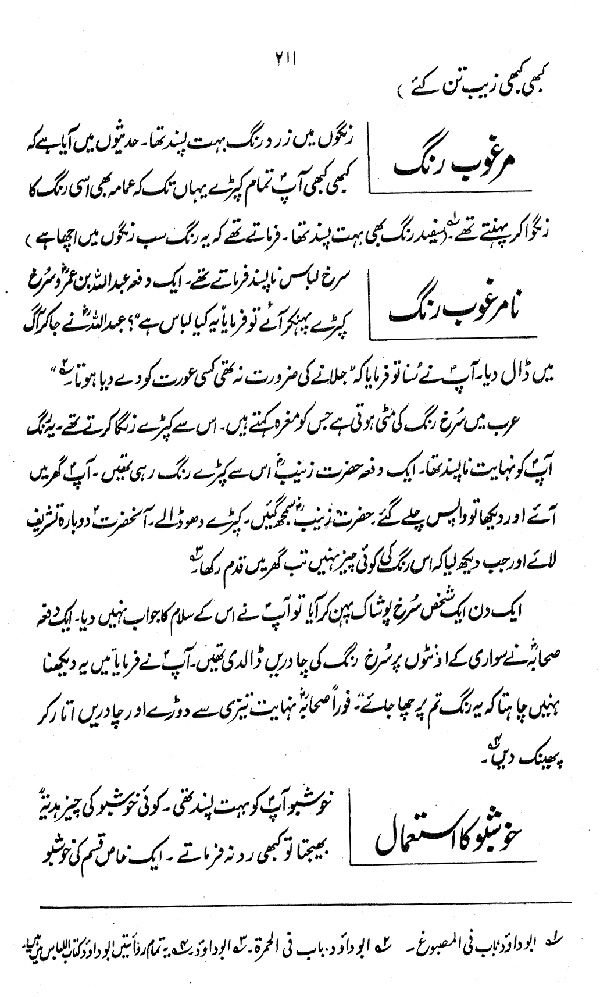 ۲۱۱
کبھی کبھی زیب تن کئے )
مرغوب رنگ
رنگوں میں زرد رنگ بہت پسند تھا۔ حدیثوں میں آیا ہے کہ
کبھی کبھی آپؐ تمام کپڑے یہاں تک کہ عمامہ بھی اسی رنگ کا
رنگوا کر پہنتے تھے۔ (سفید رنگ بھی بہت پسند تھا۔ فرماتے تھے کہ یہ رنگ سب رنگوں میں اچھا ہے )
نامرغوب رنگ
سرخ لباس ناپسند فرماتے تھے۔ ایک دفعہ عبداللہ بن عمرؓو سُرخ
کپڑے پہنکر آئے تو فرمایا "یہ کیا لباس ہے"؟ عبداللہؓ نے جاکر آگ
میں ڈال دیا۔ آپؐ نے سُنا تو فرمایا کہ "جلانے کی ضرورت نہ تھی کسی عورت کو دے دیا ہوتا۲؎"
عرب میں سُرخ رنگ کی مٹی ہوتی ہے جس کو مغرہ کہتے ہیں۔ اس سے کپڑے رنگا کرتے تھے۔ یہ رنگ
آپؐ کو نہایت ناپسند تھا۔ ایک دفعہ حضرت زینبؓ اس سے کپڑے رنگ رہی تھیں۔ آپؐ گھر میں
آئے اور دیکھا تو واپس چلے گئے۔ حضرت زینبؓ سمجھ گئیں۔ کپڑے دھو ڈالے۔ آنحضرتؐ دوبارہ تشریف
لائے اور جب دیکھ لیا کہ اس رنگ کی کوئی چیز نہیں تب گھر میں قدم رکھا۳؎۔
ایک دن ایک شخص سُرخ پوشاک پہن کر آیا تو آپؐ نے اس کے سلام کا جواب نہیں دیا۔ ایک دفعہ
صحابہؓ نے سواری کے اونٹوں پر سُرخ رنگ کی چادریں ڈالدی تھیں۔ آپؐ نے فرمایا "میں یہ دیکھنا
نہیں چاہتا کہ یہ رنگ تم پر چھا جائے"۔ فوراً صحابہؓ نہایت تیزی سے دوڑے اور چادریں اتار کر
پھینک دیں۴؎۔
خوشبو کا استعمال
خوشبو آپؐ کو بہت پسند تھی۔ کوئی خوشبو کی چیز ہدیۃً
بھیجتا تو کبھی رد نہ فرماتے۔ ایک خاص قسم کی خوشبو
۱؎ ابو داؤد باب فی المصبوغ۔ ۲؎ ابو داؤد۔ باب فی الحمرۃ۔ ۳؎ ابو داؤد۔ ۴؎ یہ تمام روایتیں ابو داؤد کتاب اللباس میں ہیں۔